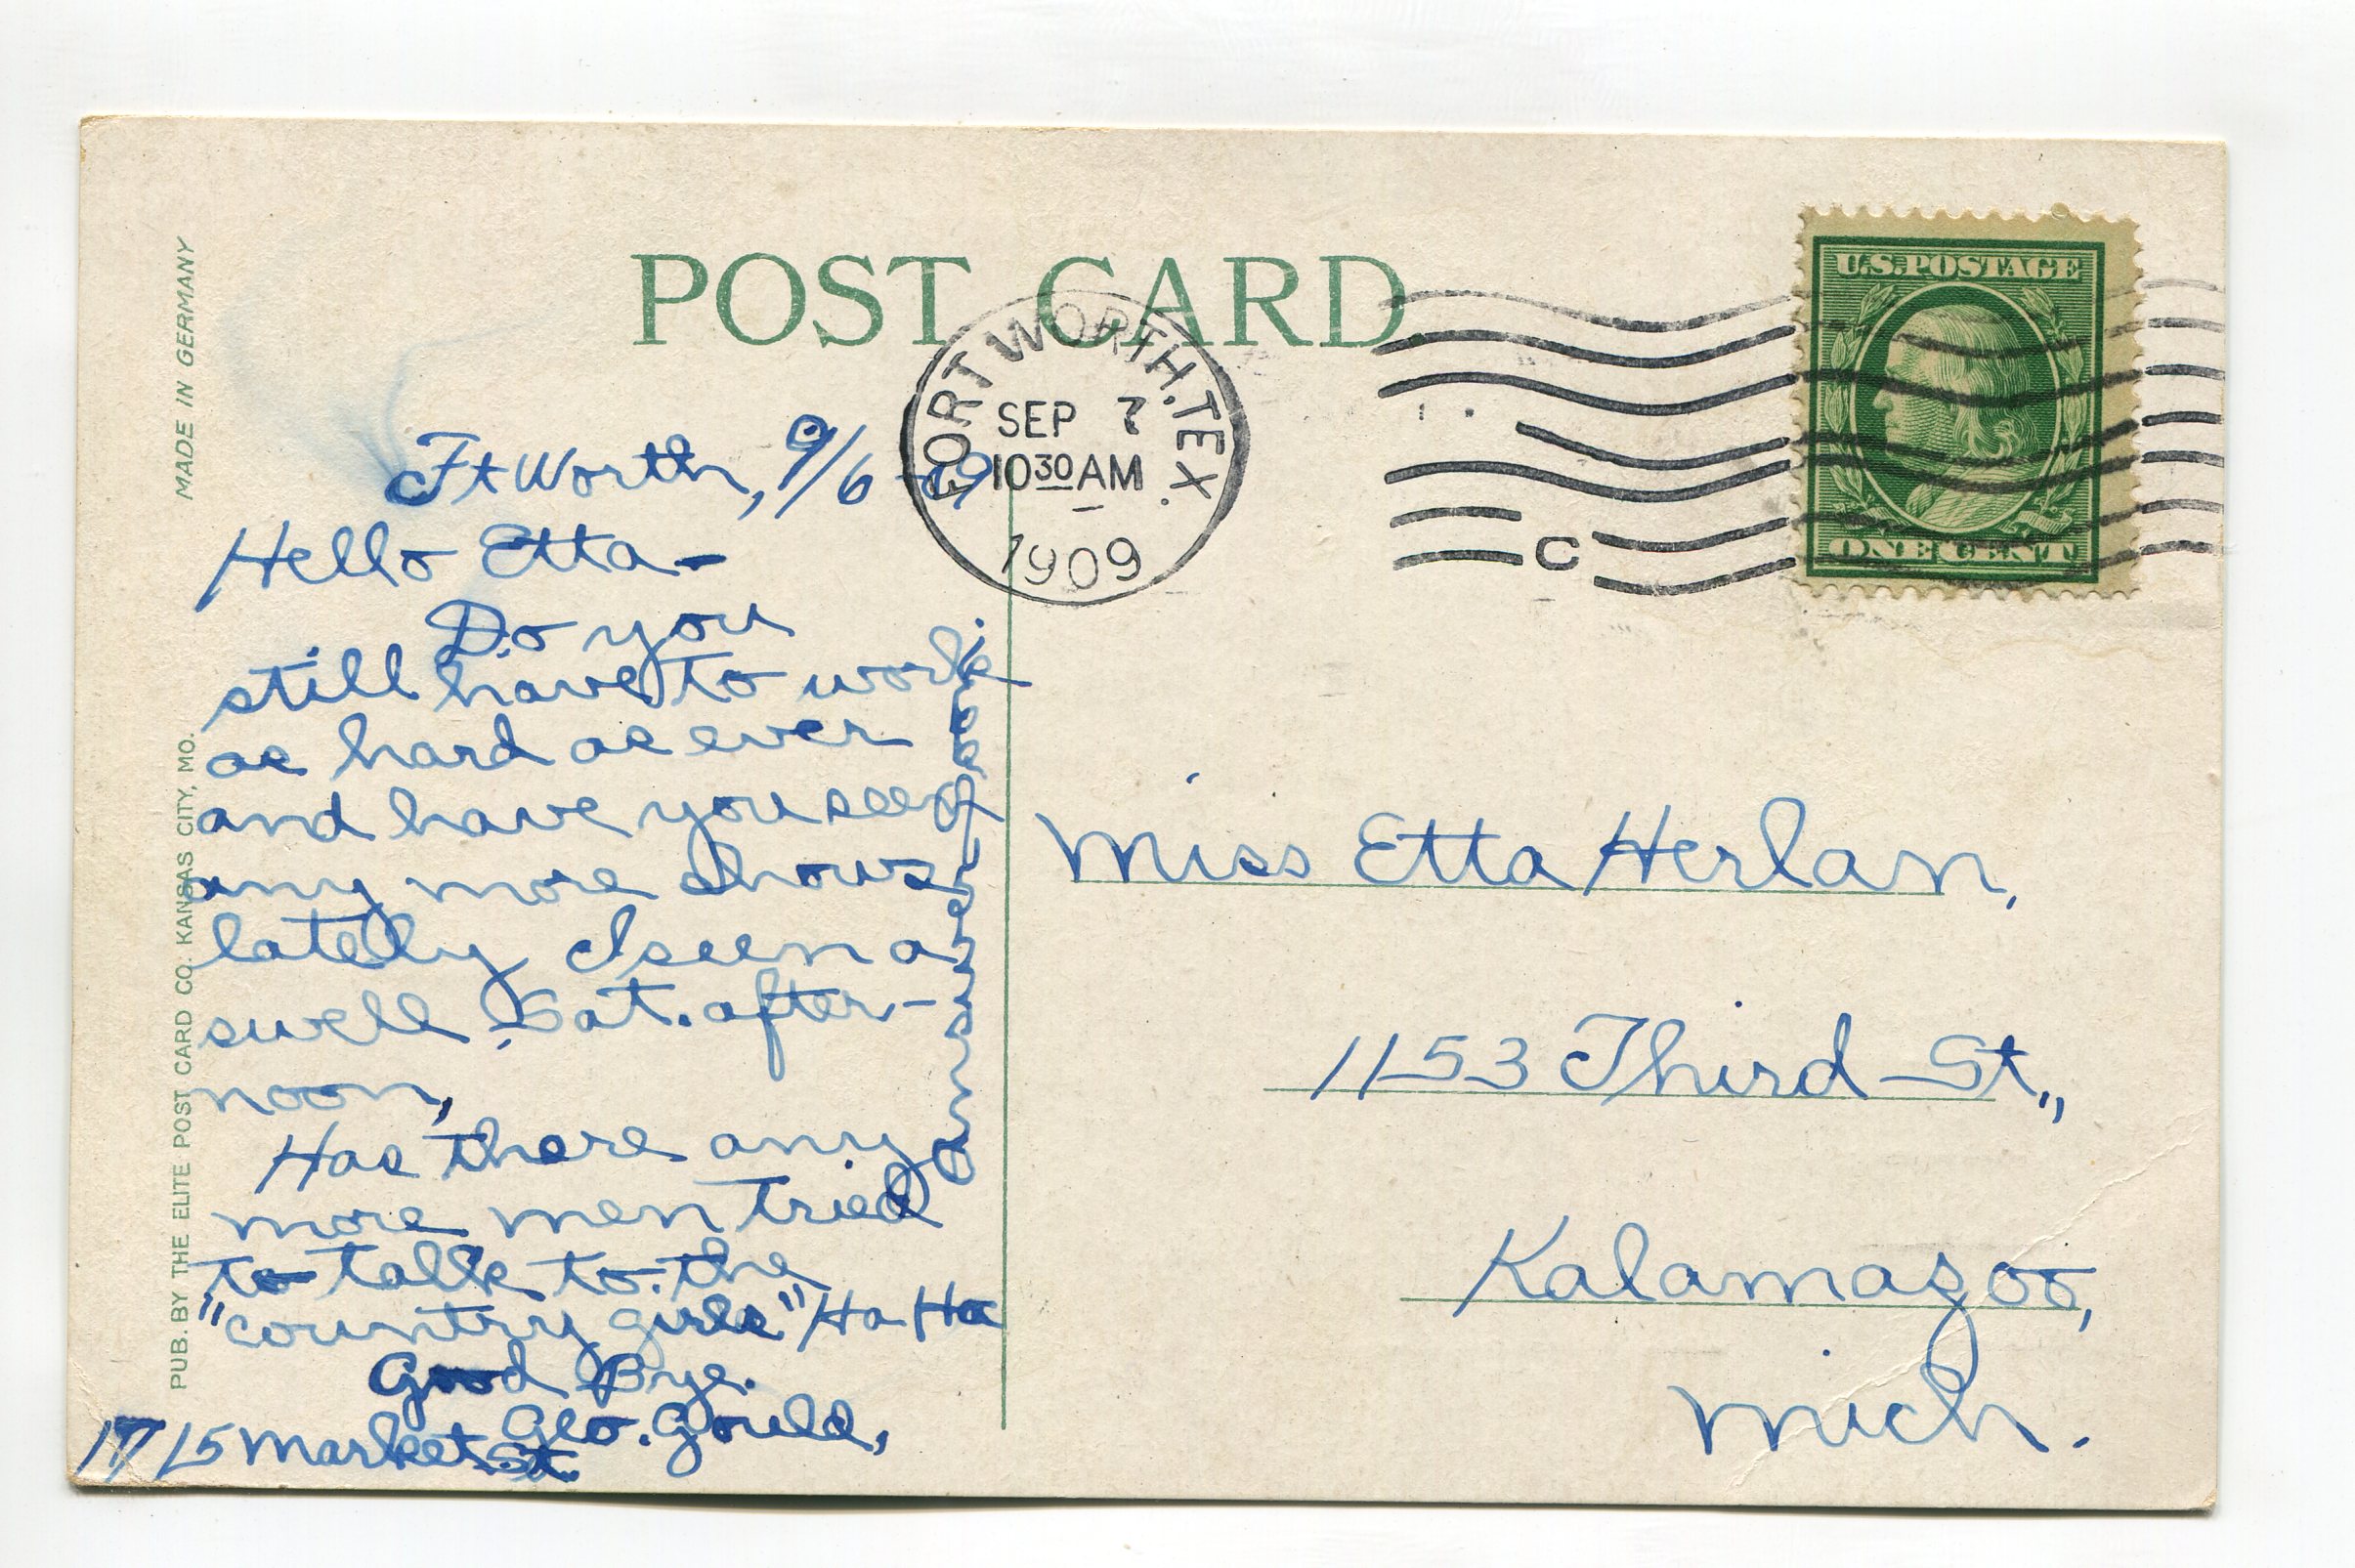 POST CARD
MADE IN GERMANY
PUB. BY THE ELITE POST CARD CO. KANSAS CITY, MO.
FORT WORTH. TEX.
SEP 7
10 30 AM
1909
C
U.S. POSTAGE
ONE CENT
Ft Worth, 9/6 - 09
Hello Etta -
Do you
still have to work
as hard as ever
and have you seen
any more shows
lately I seen a
swell, Sat. after-
noon,
Has there any
more men tried
to talk to the
"country girls" Ha Ha
Good Bye.
Geo. Gould,
1715 Market St.
answer
Miss Etta Herlan,
1153 Third St.,
Kalamazoo,
Mich.